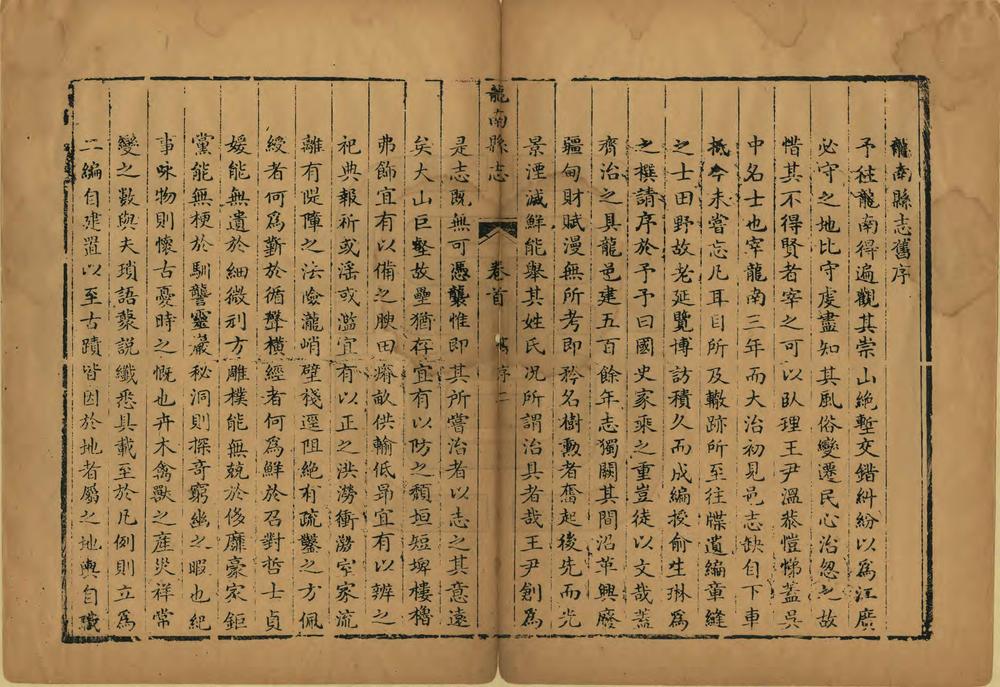 龍南縣志舊序
予往龍南得遍觀其崇山絶塹交錯糾紛以為江廣
必守之地比守虔盡知其風俗變遷民心治忽之故
惜其不得賢者宰之可以臥理王尹溫恭愷悌蓋吳
中名士也宰龍南三年而大治初見邑志缺自下車
抵今未嘗忘凡耳目所及轍跡所至往牒遺編軍縫
之士田野故老延覽博訪積久而成編授俞生琳為
之撰請序於予予曰國史家乘之重豈徒以文哉蓋
齊治之具龍邑建五百餘年志獨闕其間沿革興廢
疆甸財賦漫無所考即矜名樹勳者奮起後先而光
景湮滅鮮能舉其姓氏况所謂治具者哉王尹創為
龍南縣志 卷首 舊序 二
是志既無可憑襲惟即其所嘗治者以志之其意遠
矣大山巨壑故壘猶存宜有以防之頽垣短埤樓櫓
弗飾宜有以備之腴田瘠畝供輸低昂宜有以辨之
祀典報祈或淫或濫宜有以正之洪澇衝蕩室家流
離有隄障之法嶮瀧峭壁棧逕阻絶有疏鑿之方佩
綬者何為勤於循聲橫經者何為鮮於召對哲士貞
媛能無遺於細微刓方雕樸能無兢於侈靡豪家鉅
黨能無梗於馴讋靈巖秘洞則探奇窮幽之暇也紀
事咏物則懷古憂時之慨也卉木禽獸之產災祥常
變之數與夫瑣語褻說纖悉具載至於凡例則立為
二編自建置以至古蹟皆因於地者屬之地輿自職